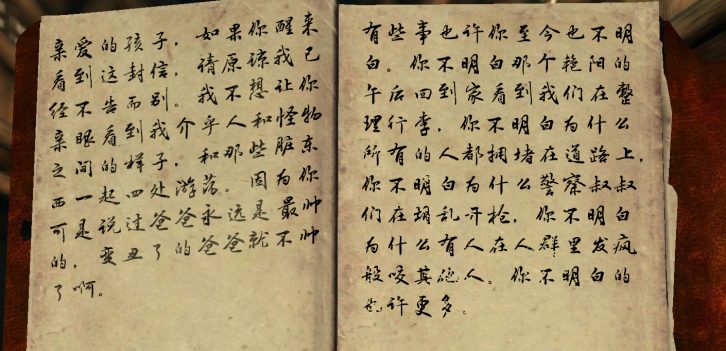 亲爱的孩子，如果你醒来
看到这封信，请原谅我已
经不告而别。我不想让你
亲眼看到我介乎人和怪物
之间的样子，和那些脏东
西一起四处游荡。因为你
可是说过爸爸永远是最帅
的，变丑了的爸爸就不帅
了啊。
有些事也许你至今也不明
白。你不明白那个艳阳的
午后回到家看到我们在整
理行李，你不明白为什么
所有的人都拥堵在道路上，
你不明白为什么警察叔叔
们在胡乱开枪，你不明白
为什么有人在人群里发疯
般咬其他人。你不明白的
也许更多。